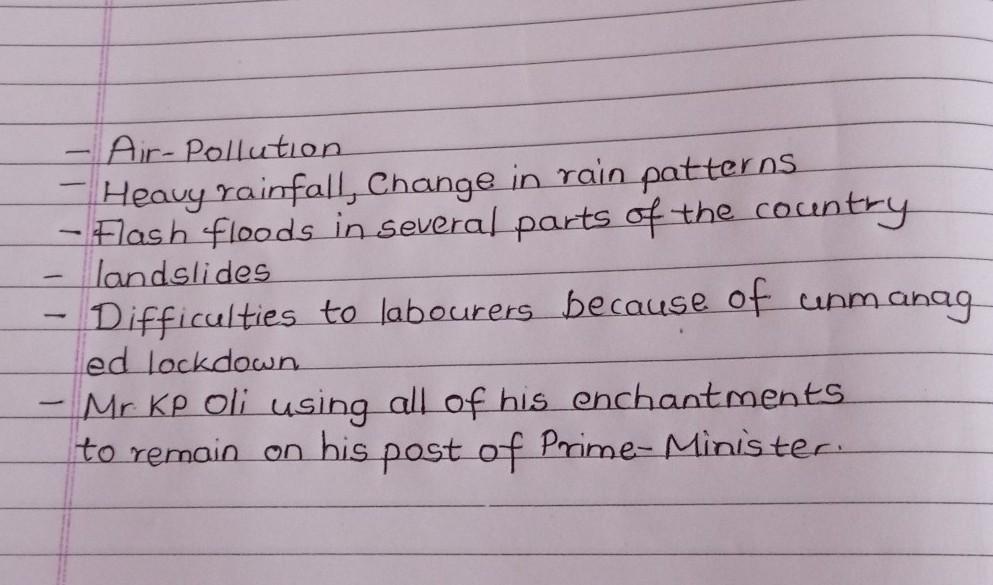 - Air-Pollution
- Heavy rainfall, Change in rain patterns
- Flash floods in several parts of the country
- landslides
- Difficulties to labourers because of unmanag
ed lockdown
- Mr. KP Oli using all of his enchantments
to remain on his post of Prime-Minister.